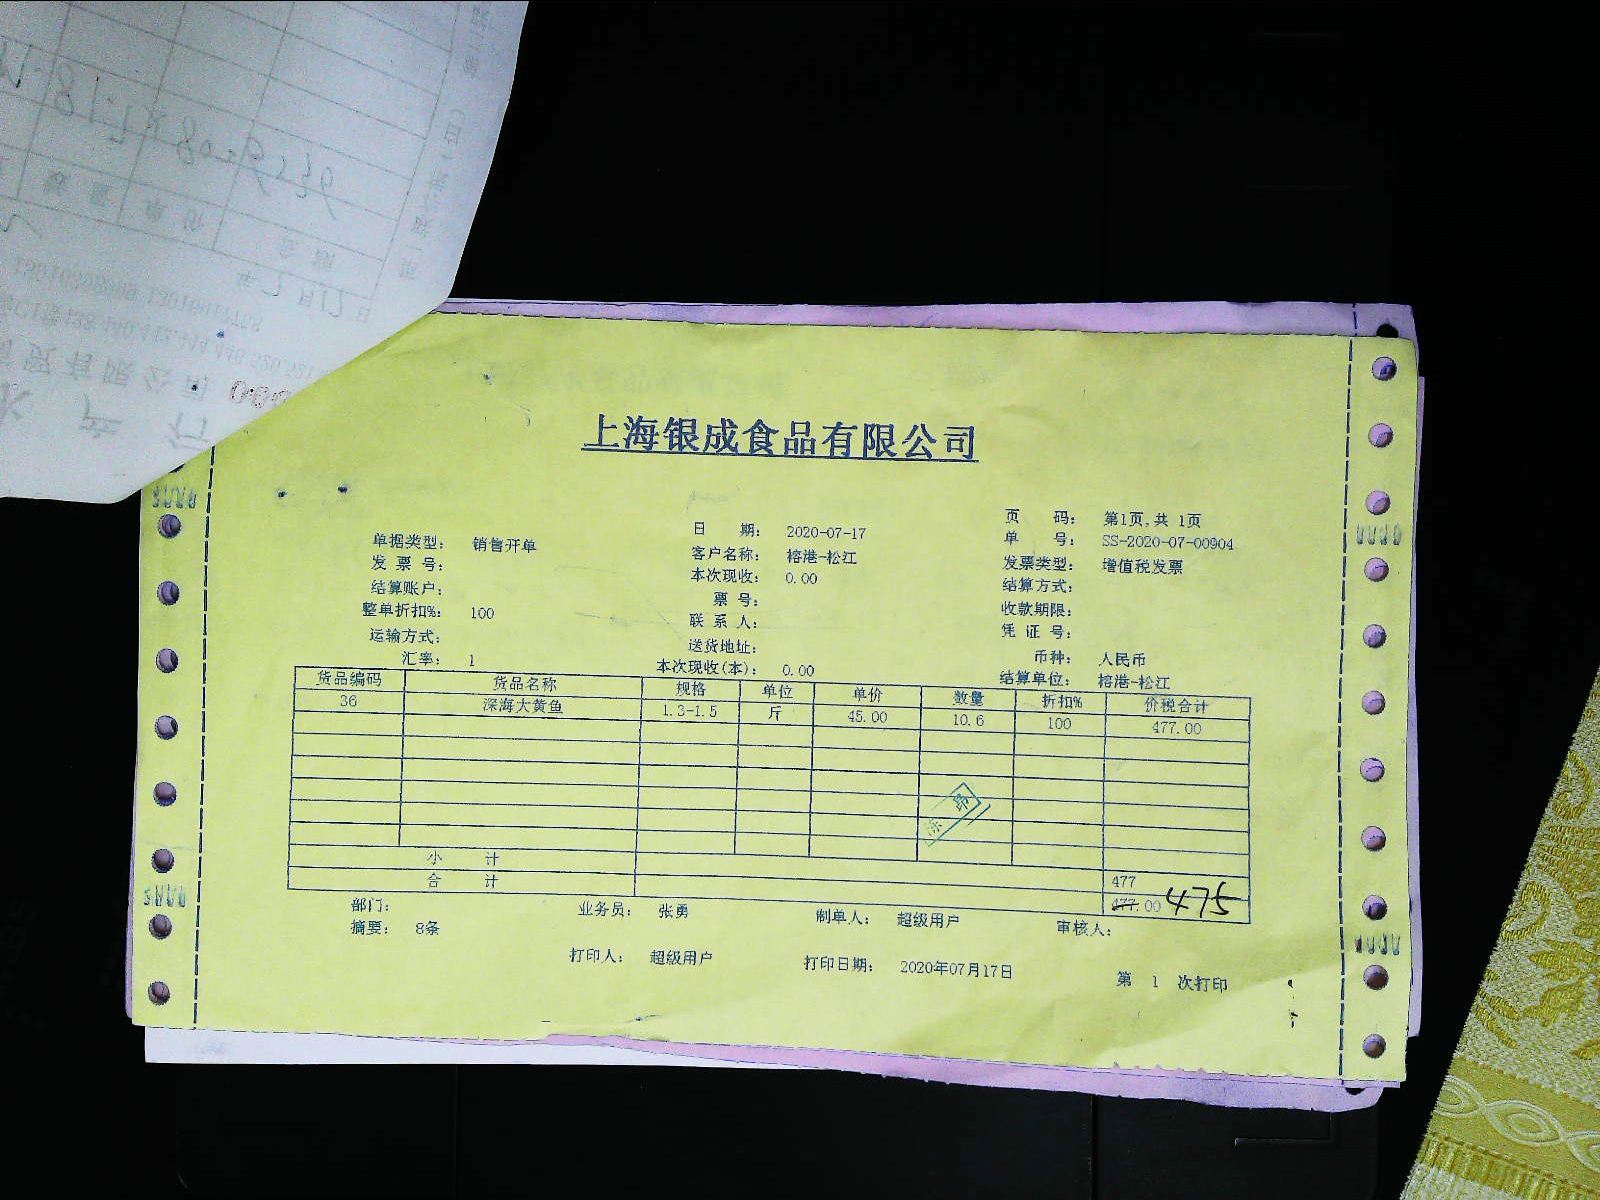 上海银成食品有限公司
页 码： 第1页,共 1页
日 期： 2020-07-17 单 号： SS-2020-07-00904
单据类型： 销售开单 客户名称： 榕港-松江 发票类型： 增值税发票
发 票 号： 本次现收： 0.00 结算方式：
结算账户： 票 号： 收款期限：
整单折扣%： 100 联 系 人： 凭 证 号：
运输方式： 送货地址： 币种： 人民币
汇率： 1 本次现收(本)： 0.00 结算单位： 榕港-松江
货品编码 货品名称 规格 单位 单价 数量 折扣% 价税合计
36 深海大黄鱼 1.3-1.5 斤 45.00 10.6 100 477.00
小 计 477
合 计 477.00 475
部门： 业务员： 张勇 制单人： 超级用户 审核人：
摘要： 8条
打印人： 超级用户 打印日期： 2020年07月17日 第 1 次打印